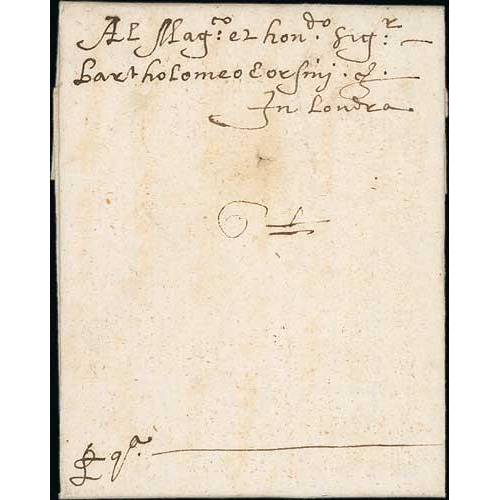 Al Mag.co et hon.do Sig.r
Bartholomeo Corsini.
In Londra.